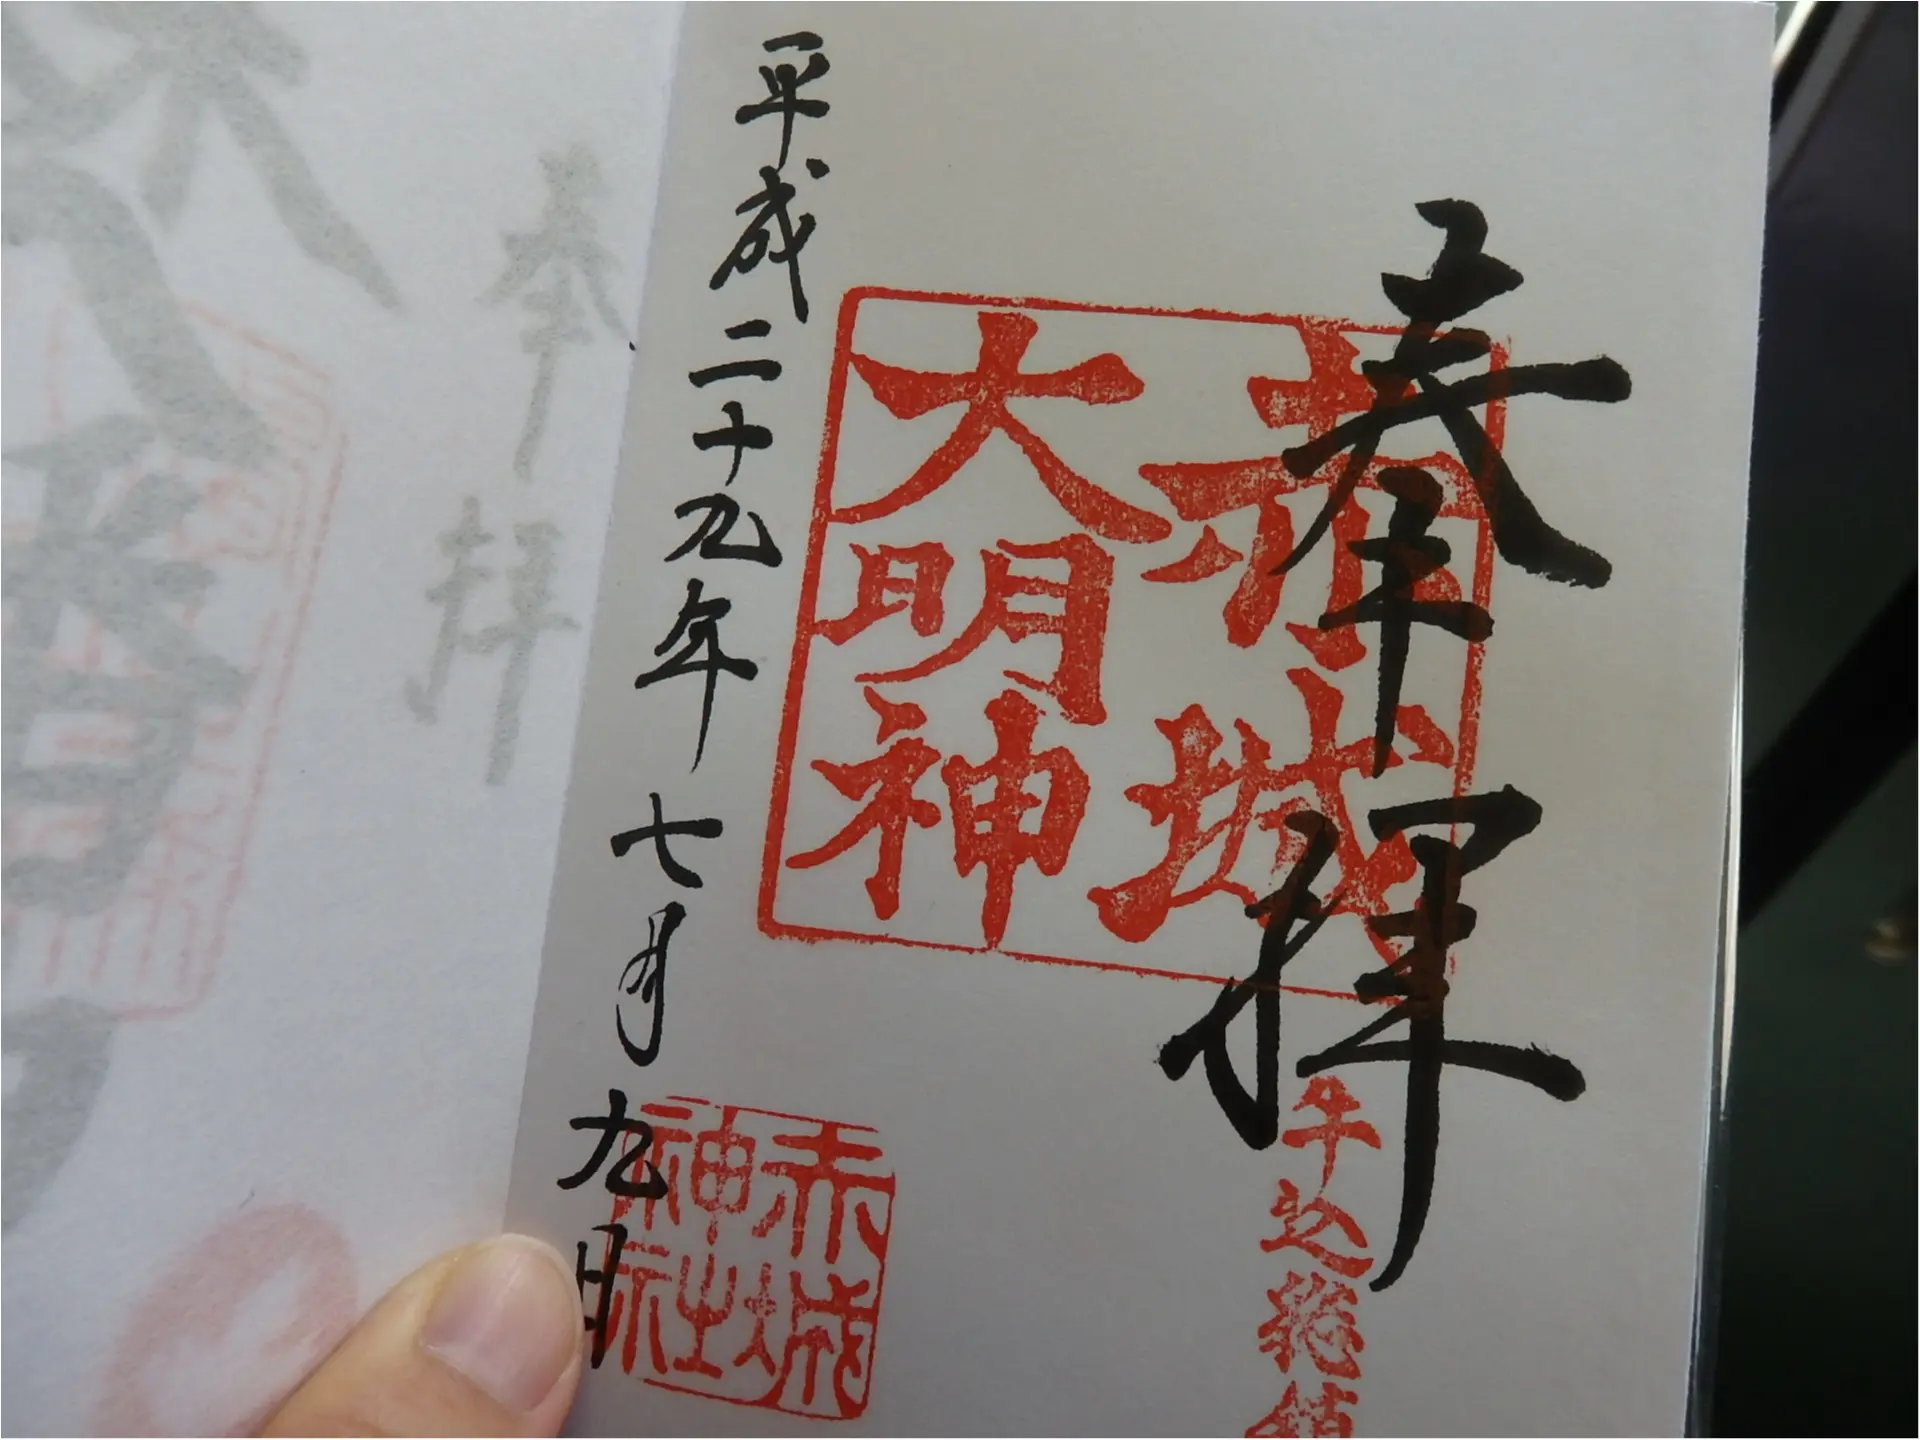 奉拝
赤城
大明神
牛込総鎮
平成二十九年七月九日
赤城
神社
奉拝